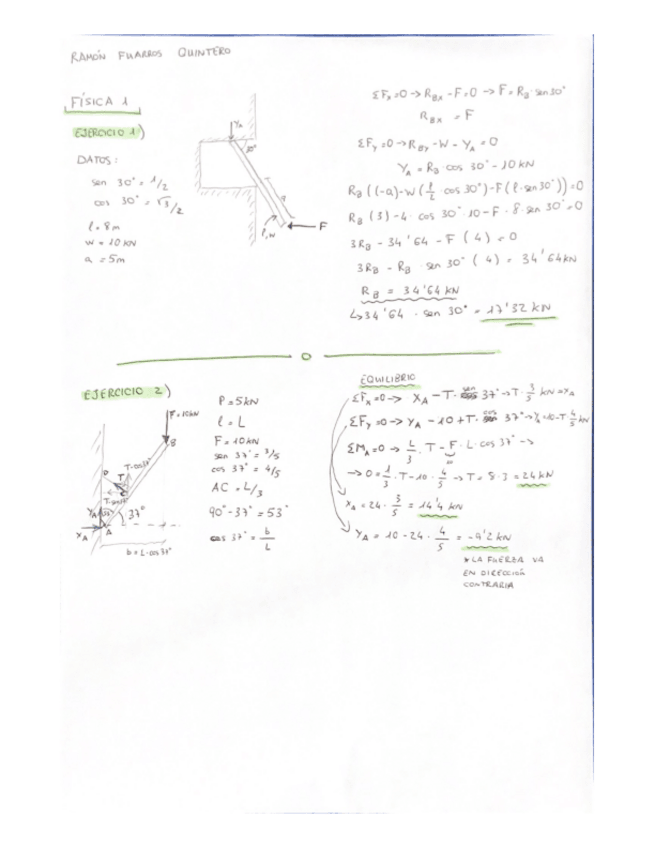 RAMÓN FUARROS QUINTERO
FÍSICA 1
EJERCICIO 1)
DATOS:
sen 30° = 1/2
cos 30° = √3/2
l = 8m
W = 10 KN
a = 5m
YA
30°
a
l, W
F
ΣFx=0 → RBx - F = 0 → F = RB · sen 30°
RBx = F
ΣFy=0 → RBy - W - YA = 0
YA = RB · cos 30° - 10 KN
RB (l-a) - W (l/2 · cos 30°) - F (l · sen 30°) = 0
RB (3) - 4 · cos 30° · 10 - F · 8 · sen 30° = 0
3RB - 34'64 - F (4) = 0
3RB - RB · sen 30° (4) = 34'64 KN
RB = 34'64 KN
↳ 34'64 · sen 30° = 17'32 KN
EJERCICIO 2)
F=10KN
B
D
T
T·cos37°
C
T·sen37°
YA
53°
37°
XA
A
b = L·cos37°
P = 5 KN
l = L
F = 10 KN
sen 37° = 3/5
cos 37° = 4/5
AC = L/3
90° - 37° = 53°
cos 37° = b/L
EQUILIBRIO
ΣFx=0 → XA - T · sen 37° → T · 3/5 KN = XA
ΣFy=0 → YA - 10 + T · cos 37° → YA = 10 - T · 4/5 KN
ΣMA=0 → L/3 · T - F · L · cos 37° →
10
→ 0 = 1/3 · T - 10 · 4/5 → T = 8 · 3 = 24 KN
XA = 24 · 3/5 = 14'4 KN
YA = 10 - 24 · 4/5 = -9'2 KN
* LA FUERZA VA
EN DIRECCIÓN
CONTRARIA